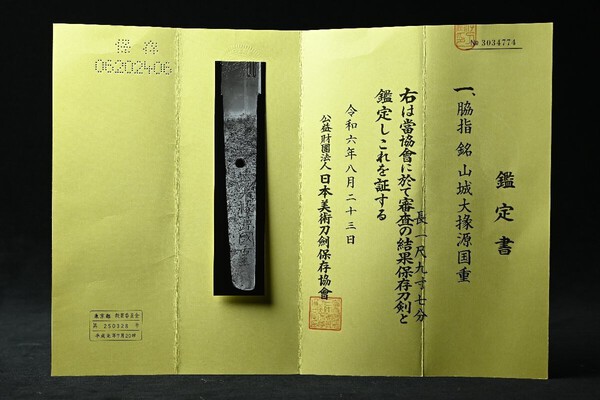 No 3034774
鑑定書
一、脇指 銘 山城大掾源国重
長 一尺九寸七分
右は當協會に於て審査の結果保存刀剣と
鑑定しこれを証する
令和六年八月二十三日
公益財團法人 日本美術刀劍保存協會
保存
06202406
東京都 教育委員会
第 250328 号